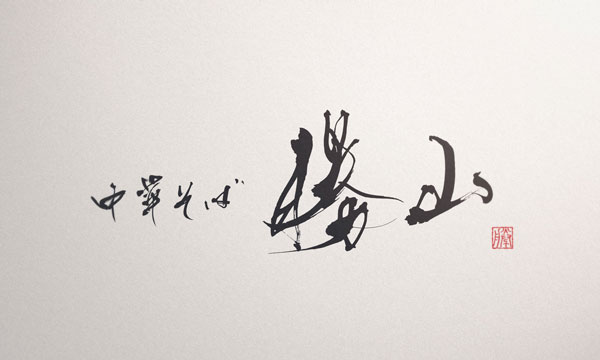 中華そば 櫻山